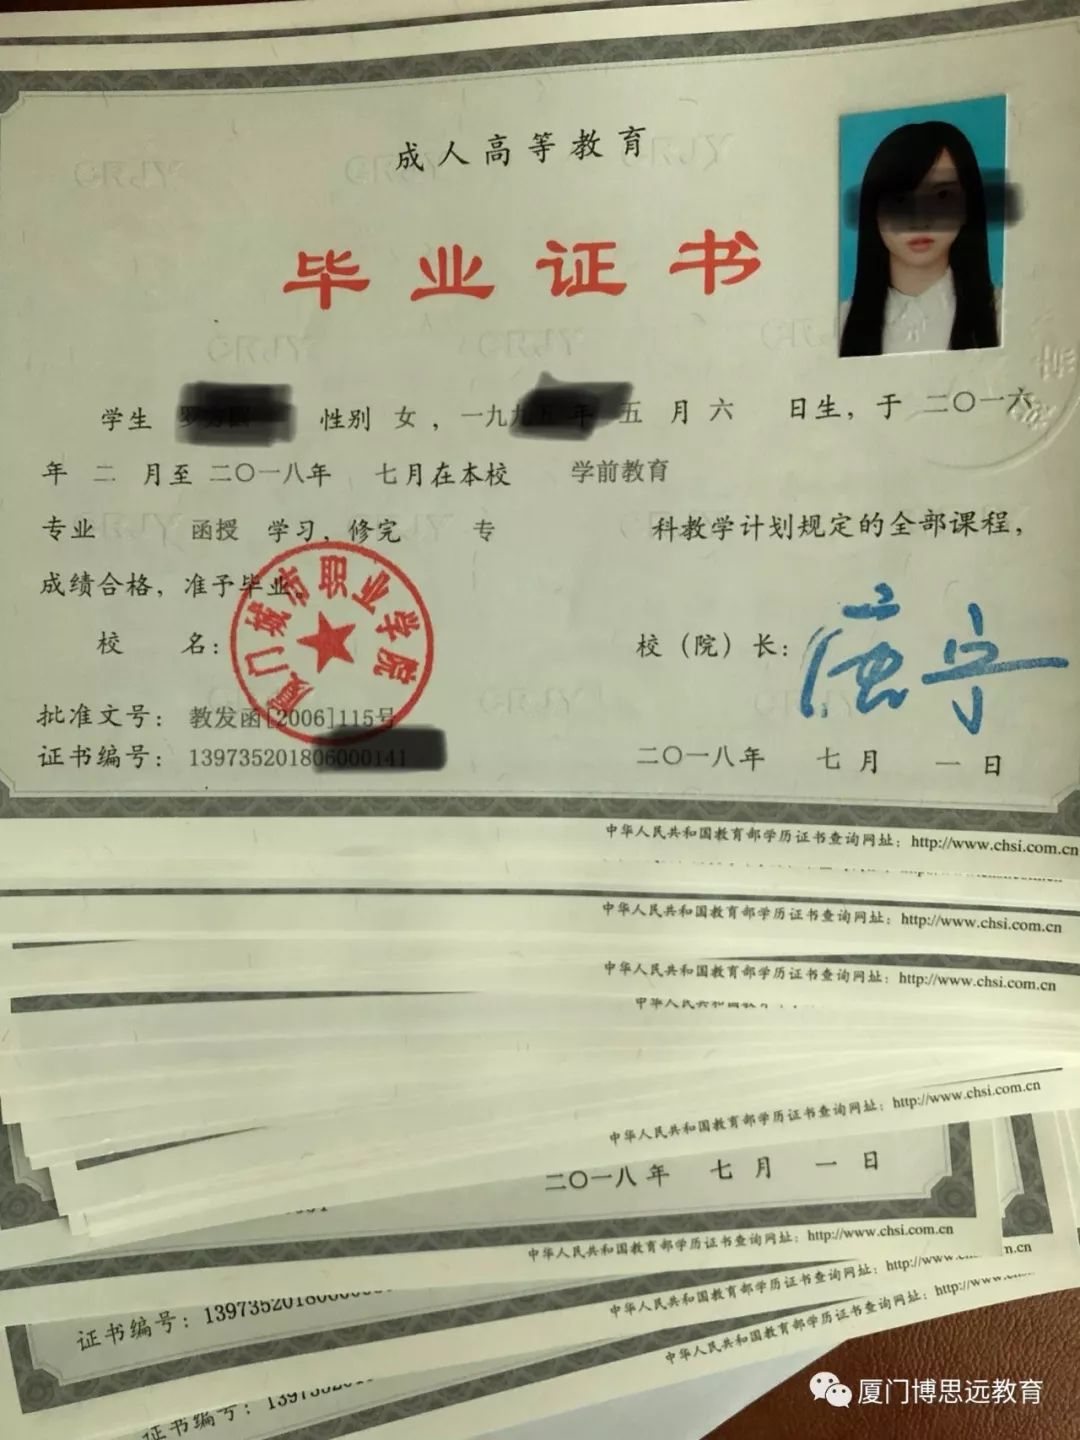 成人高等教育
毕业证书
学生 性别 女，一九九 五 月 六 日生，于 二〇一六
年 二 月至 二〇一八年 七月在本校 学前教育
专业 函授 学习，修完 专 科教学计划规定的全部课程，
成绩合格，准予毕业。
厦门城市职业学院
校 名： 校（院）长：
批准文号： 教发函[2006]115号
证书编号： 139735201806
二〇一八年 七月 一日
中华人民共和国教育部学历证书查询网址：http://www.chsi.com.cn
中华人民共和国教育部学历证书查询网址：http://www.chsi.com.cn
中华人民共和国教育部学历证书查询网址：http://www.chsi.com.cn
中华人民共和国教育部学历证书查询网址：http://www.chsi.com.cn
二〇一八年 七月 一日
中华人民共和国教育部学历证书查询网址：http://www.chsi.com.cn
证书编号：139735201806
中华人民共和国教育部学历证书查询网址：http://www.
中华人民共和国教育部学历证书查询网址：http://www.
证书编号：
厦门博思远教育